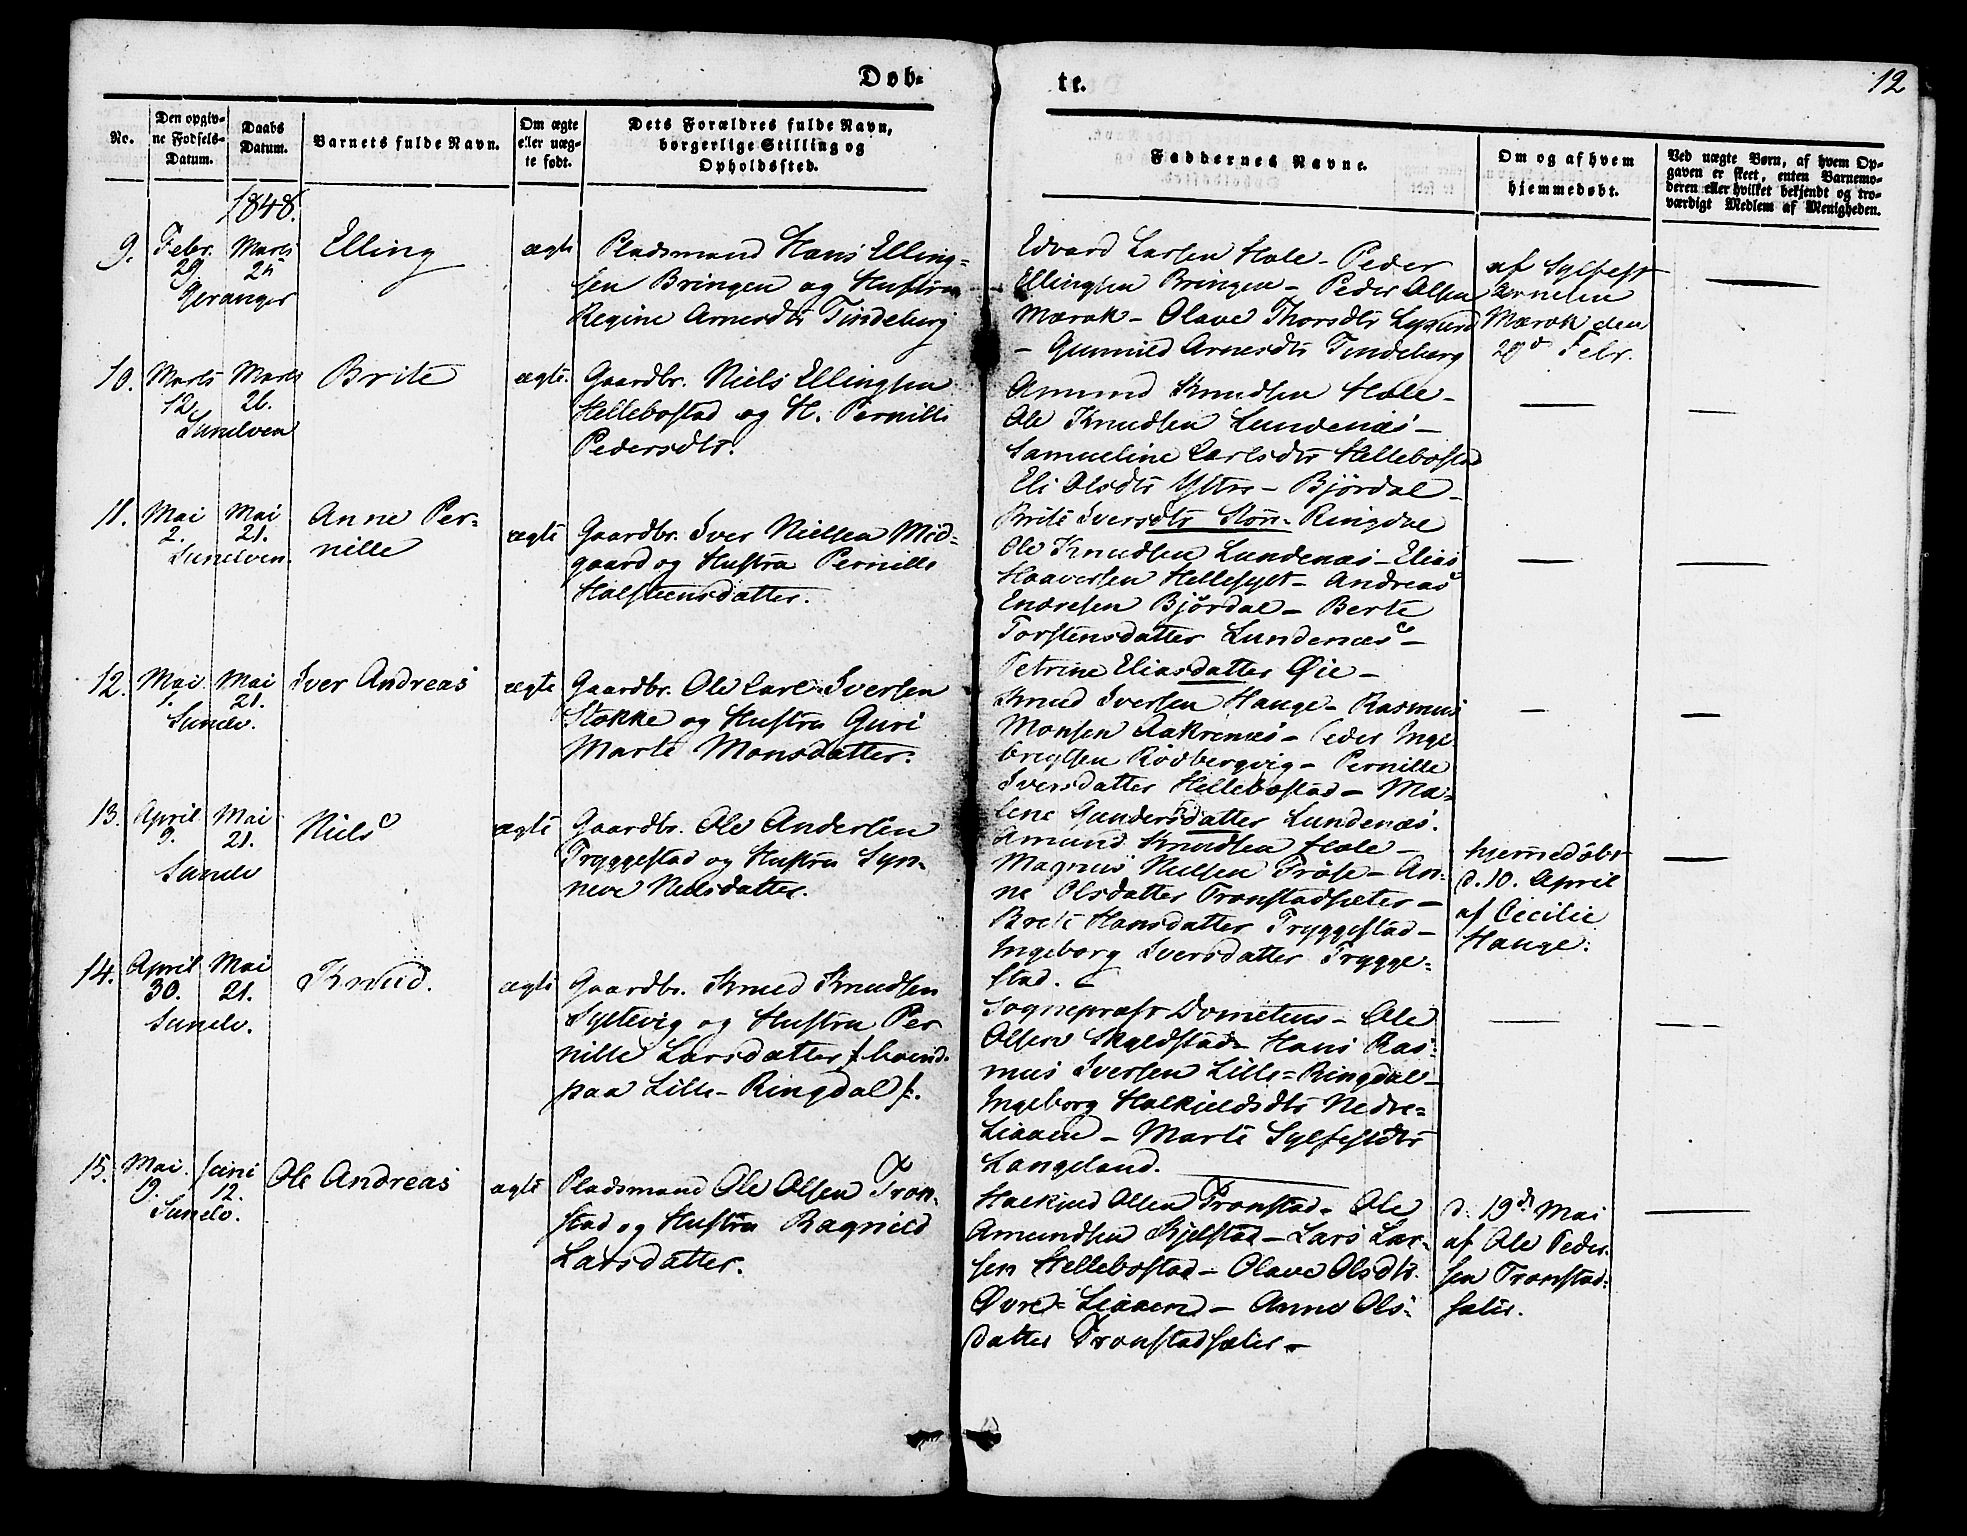 Døb-
te.
12
No.
Den opgiv-
ne Fødsels-
Datum.
Daabs
Datum.
Barnets fulde Navn.
Om ægte
eller uæg-
te født.
Dets Forældres fulde Navn,
borgerlige Stilling og
Opholdssted.
Faddernes Navne.
Om og af hvem
hjemmedøbt.
Ved uægte Børn, af hvem Op-
gaven er skeet, enten Barnemo-
deren eller hvilket bekjendt og tro-
værdigt Medlem af Menigheden.
1848.
9.
Febr.
29
Geranger
Marts
Elling
ægte
Pladsmand Hans Elling-
sen Bringen og Hustru
Regine Arnesdtr Tindebierg
Edvard Larsen Hole - Peder
Ellingsen Bringen - Peder Olsen
Mærok - Olave Thorsdtr
- Gunnild Arnesdtr
af Sylfest
Arnesen
Mærok den
Febr.
10.
Marts
12
Sunelven
Marts
26.
Brite
ægte.
Gaardbr. Niels Ellingsen
Hellebostad og H. Pernille
Pedersdtr.
Amund Knudsen Hole -
Ole Knudsen Lundenæs -
Samueline Carlsdtr Hellebostad
Eli Olsdtr Ytre - Bjørdal -
Brite Iversdtr Stor-Ringdal
11.
Mai
2.
Sunelven.
Mai
21.
Anne Per-
nille
ægte
Gaardbr. Iver Nielsen Mid-
gaard og Hustru Pernille
Halsteensdatter.
Ole Knudsen Lundenæs - Elias
Haaversen Hellesylt - Andreas
Endresen Bjørdal - Berte
Torstensdatter Lundenæs -
Petrine Eliasdatter Øie -
12.
Mai
Sunelv.
Mai
21.
Iver Andreas
ægte
Gaardbr. Ole Carl Iversen
Stokke og Hustru Guri
Marte Monsdatter.
Knud Iversen Hauge - Rasmus
Monsen Aakrenæs - Peder Inge-
bregtsen Rødbergvig - Pernille
Iversdatter Hellebostad - Ma-
lene Gundersdatter Lundenæs.
13.
April
9.
Sunelv
Mai
21.
Niels
ægte
Gaardbr. Ole Andersen
Tryggestad og Hustru Syn-
neve Nielsdatter.
Amund Knudsen Hole -
Magnus Nielsen Frøse - An-
ne Olsdatter Tronstadsæter -
Brete Hansdatter Tryggestad -
Ingeborg Iversdatter Trygge-
stad.
hjemmedøbt
d. 10. April
af Cecilie
Hauge.
14.
April
30.
Sunelv.
Mai
21.
Knud.
ægte
Gaardbr. Knud Knudsen
Syltevig og Hustru Per
nille Larsdatter
paa Lille-Ringdal
Sognepræst Dometius - Ole
Olsen Skyldstad - Hans Ras-
mus Iversen Lille=Ringdal -
Ingeborg Halkjeldsdtr Nedre=
Liaaen - Marte Sylfestdtr
Langeland.
15.
Mai
9.
Sunelv.
Juni
12.
Ole Andreas
ægte
Pladsmand Ole Olsen Tron-
stad og Hustru Ragnild
Larsdatter.
Halkjeld Olsen Tronstad - Ole
Amundsen Kjelstad - Lars Lar-
sen Hellebostad - Olave Olsdtr.
Øvre=Liaaen - Anne Ols-
datter Tronstadsæter -
d. 19d Mai
af Ole Peder-
sen Tronstad-
sæter.